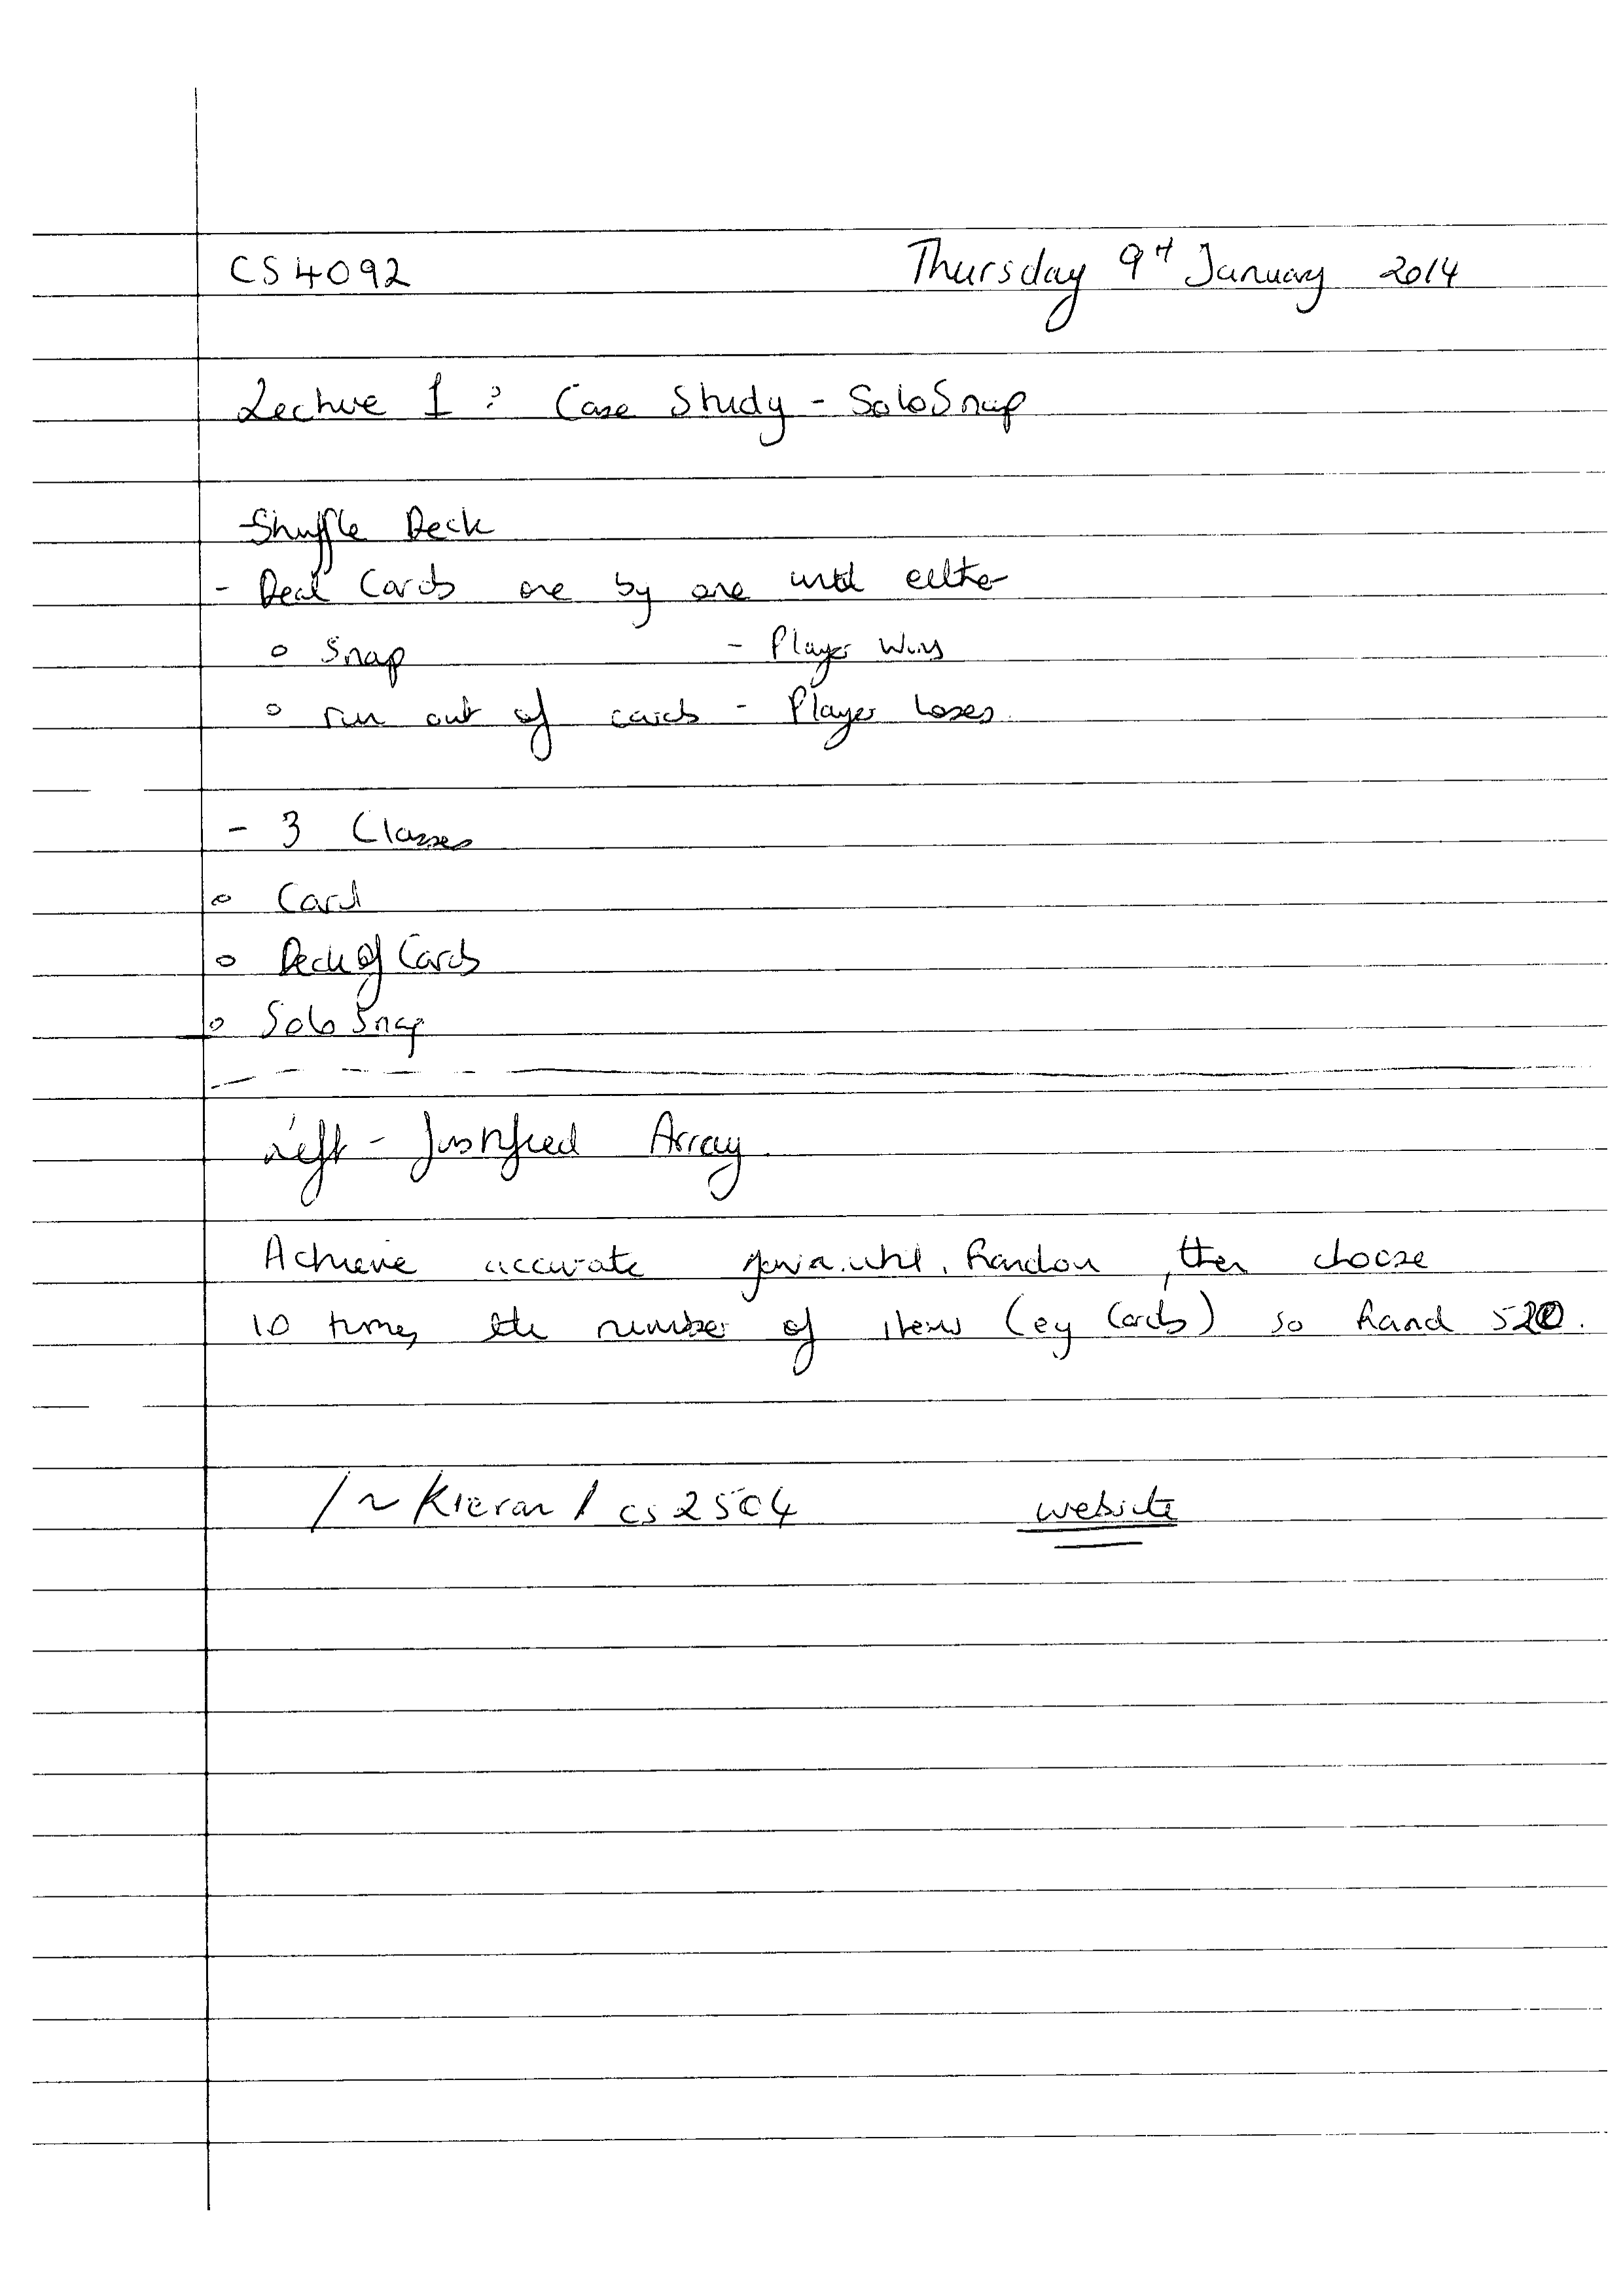 CS4092 Thursday 9th January 2014
Lecture 1 : Case Study - SoloSnap
-Shuffle Deck
- Deal Cards one by one until either
o Snap - Player Wins
o run out of cards - Player loses.
- 3 Classes
o Card
o DeckOfCards
o SoloSnap
Left - Justified Array.
Achieve accurate java.util.Random, then choose
10 times the number of items (eg Cards) so Rand 520.
/~Kieran/cs2504 website